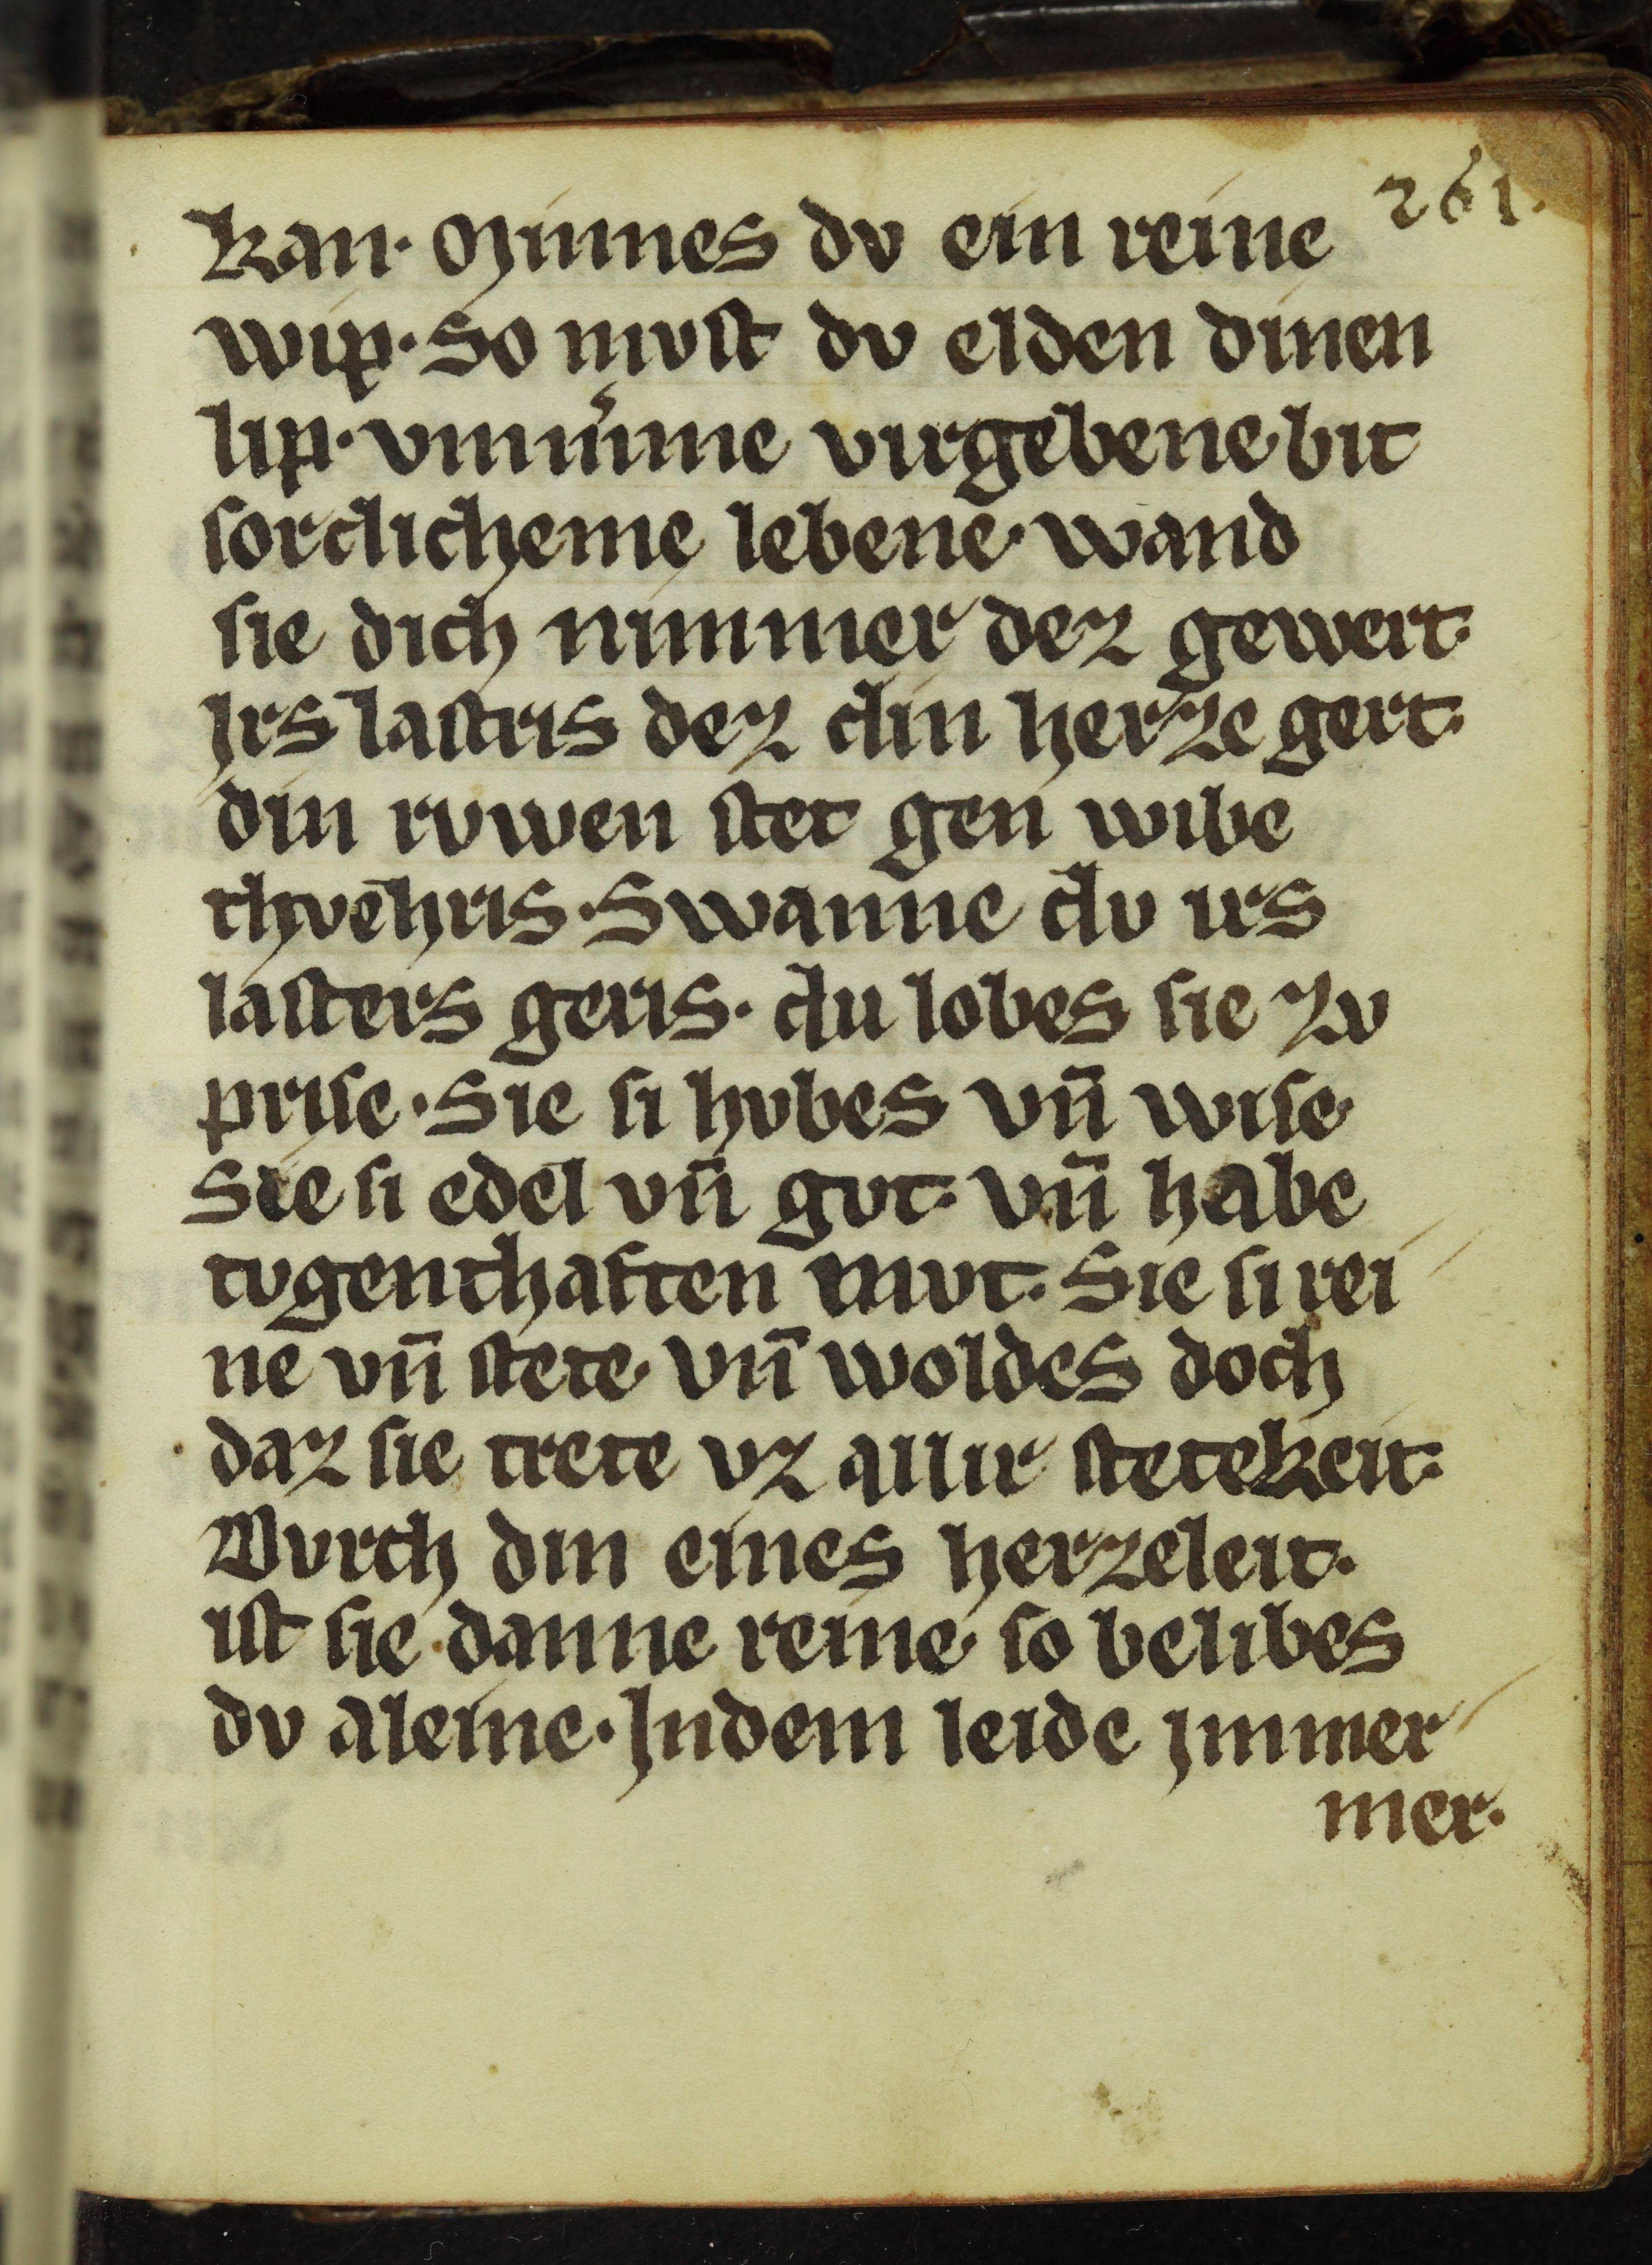 261.
kan· Minnes dv ein reine
wip· So mvst dv elden dinen
lip· vmmīme virgebene· bit
sorclicheme lebene· wand
sie dich nimmer dez gewert·
Irs lastris dez din herze gert·
din rvwen stet gen wibe
thvēhris· Swanne dv irs
lasters geris· du lobes sie zv
prise· Sie si hvbes vn̄ wise·
Sie si edel vn̄ gvt· vn̄ habe
tvgenthaften mvt· Sie si rei
ne vn̄ stete· vn̄ woldes doch
daz sie trete vz allir stetekeit·
Dvrch din eines herzeleit·
ist sie danne reine· so belibes
dv aleine· Indem leide immer
mer·